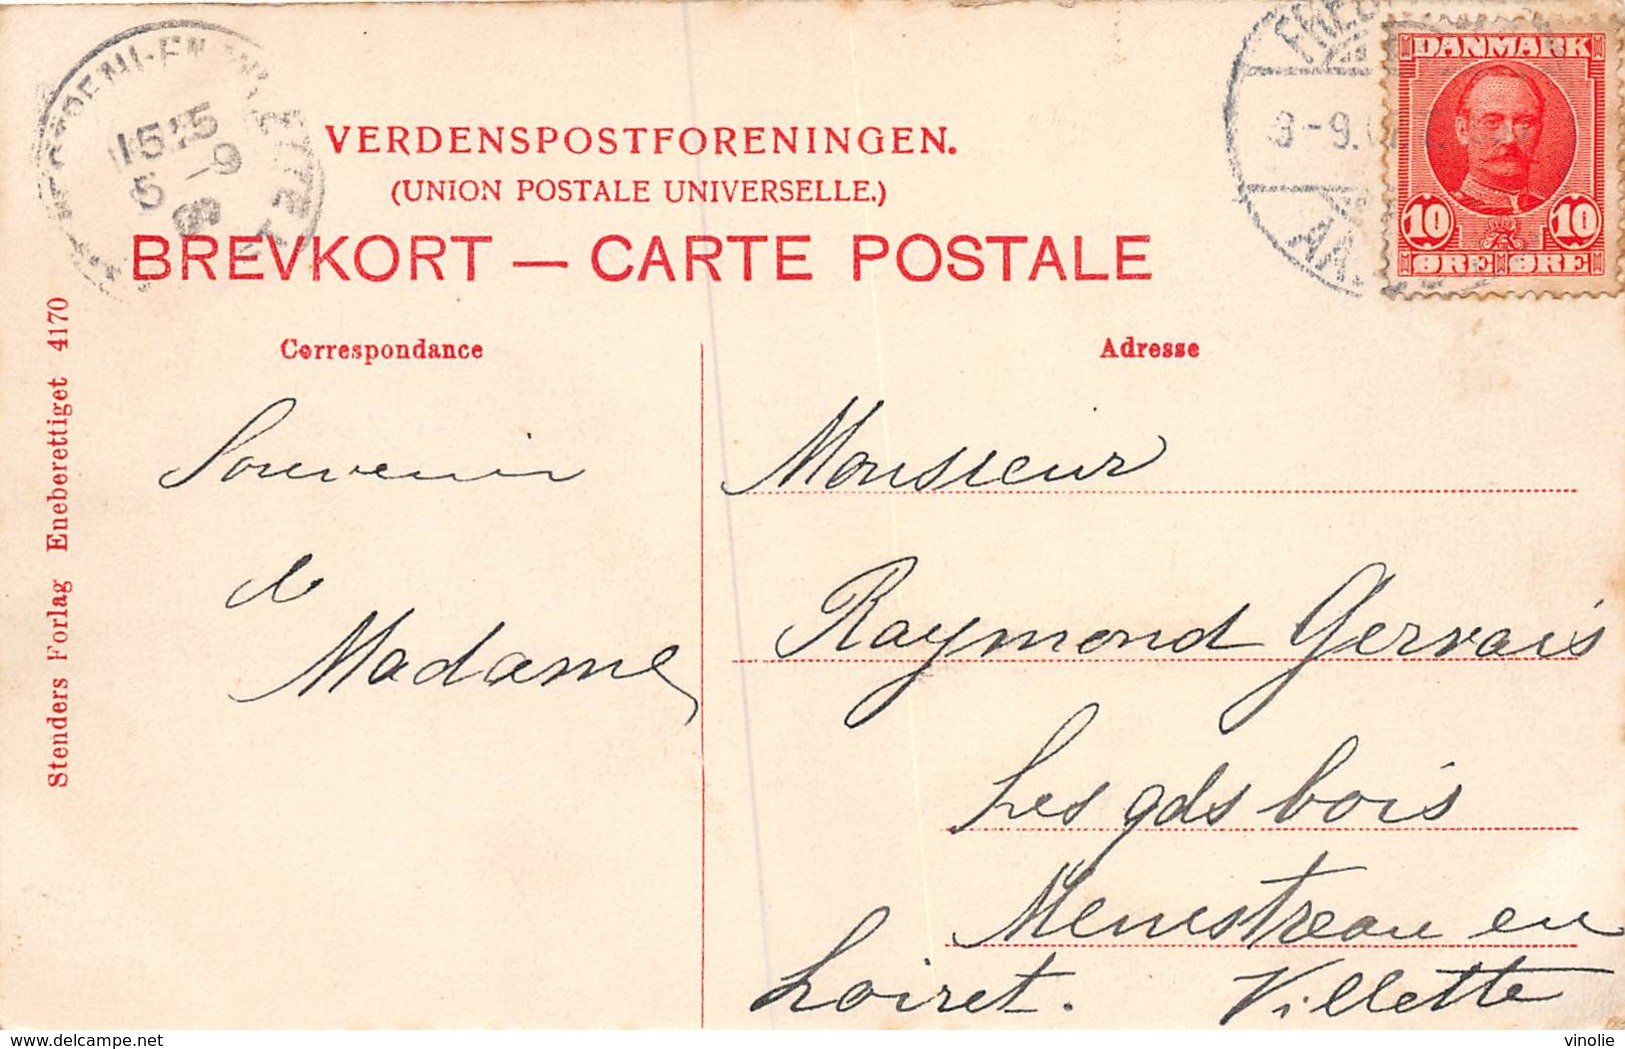 DANMARK
10 10
ØRE ØRE
15
5 -9
3-9.
AA
VERDENSPOSTFORENINGEN.
(UNION POSTALE UNIVERSELLE.)
BREVKORT — CARTE POSTALE
Stenders Forlag Eneberettiget 4170
Correspondance
Souvenir
de
Madame
Adresse
Monsieur
Raymond Gervais
Les gds bois
Menestreau en
Villette
Loiret.
delcampe.net
vinolie